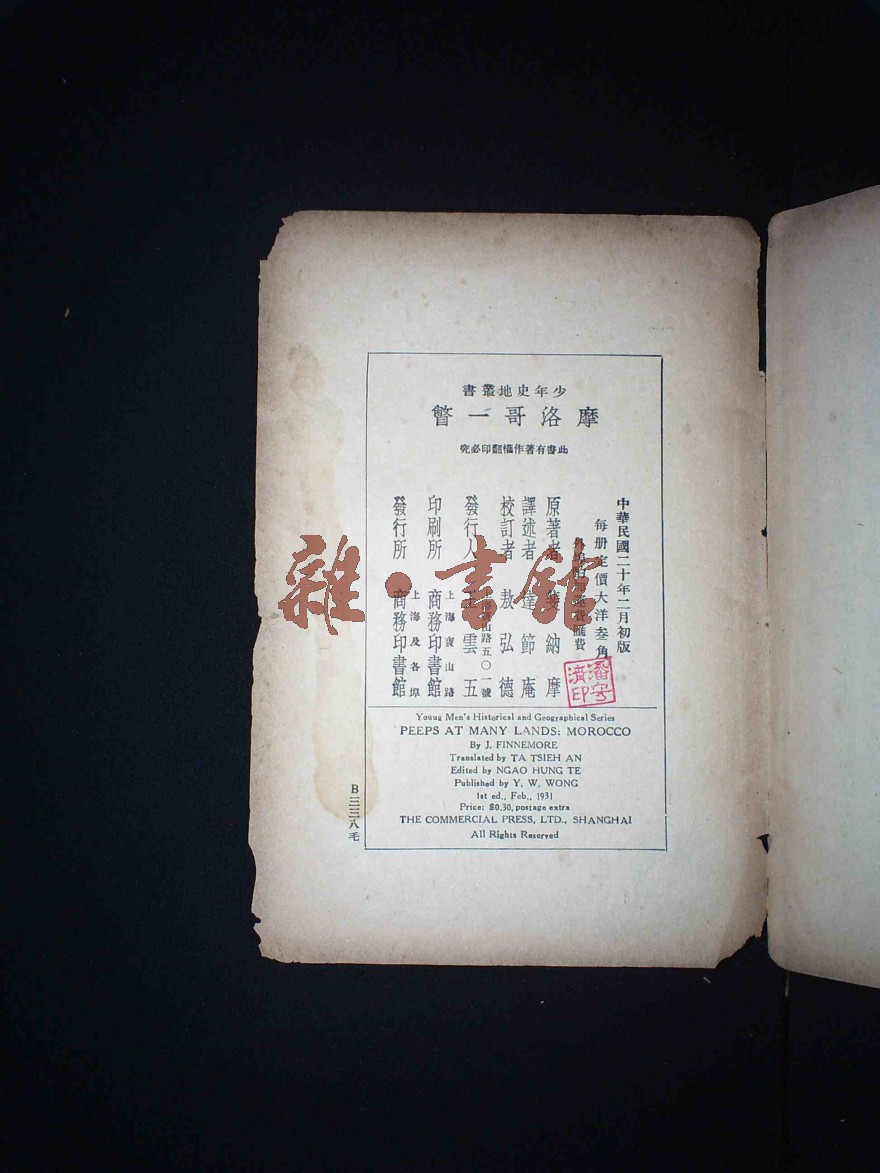 少年史地叢書
摩洛哥一瞥
此書有著作權翻印必究
中華民國二十年二月初版
每册定價大洋叁角
外埠酌加運費匯費
原著者 斐納摩
譯述者 達節庵
校訂者 敖弘德
發行人 王雲五
上海寶山路五〇一號
印刷所 商務印書館
上海寶山路
發行所 商務印書館
上海及各埠
潘宇
濟印
Youug Men's Historical and Geographical Series
PEEPS AT MANY LANDS: MOROCCO
By J. FINNEMORE
Translated by TA TSIEH AN
Edited by NGAO HUNG TE
Published by Y. W. WONG
1st ed., Feb., 1931
Price: $0.30, postage extra
THE COMMERCIAL PRESS, LTD., SHANGHAI
All Rights Reserved
B三三八毛
雜·書館